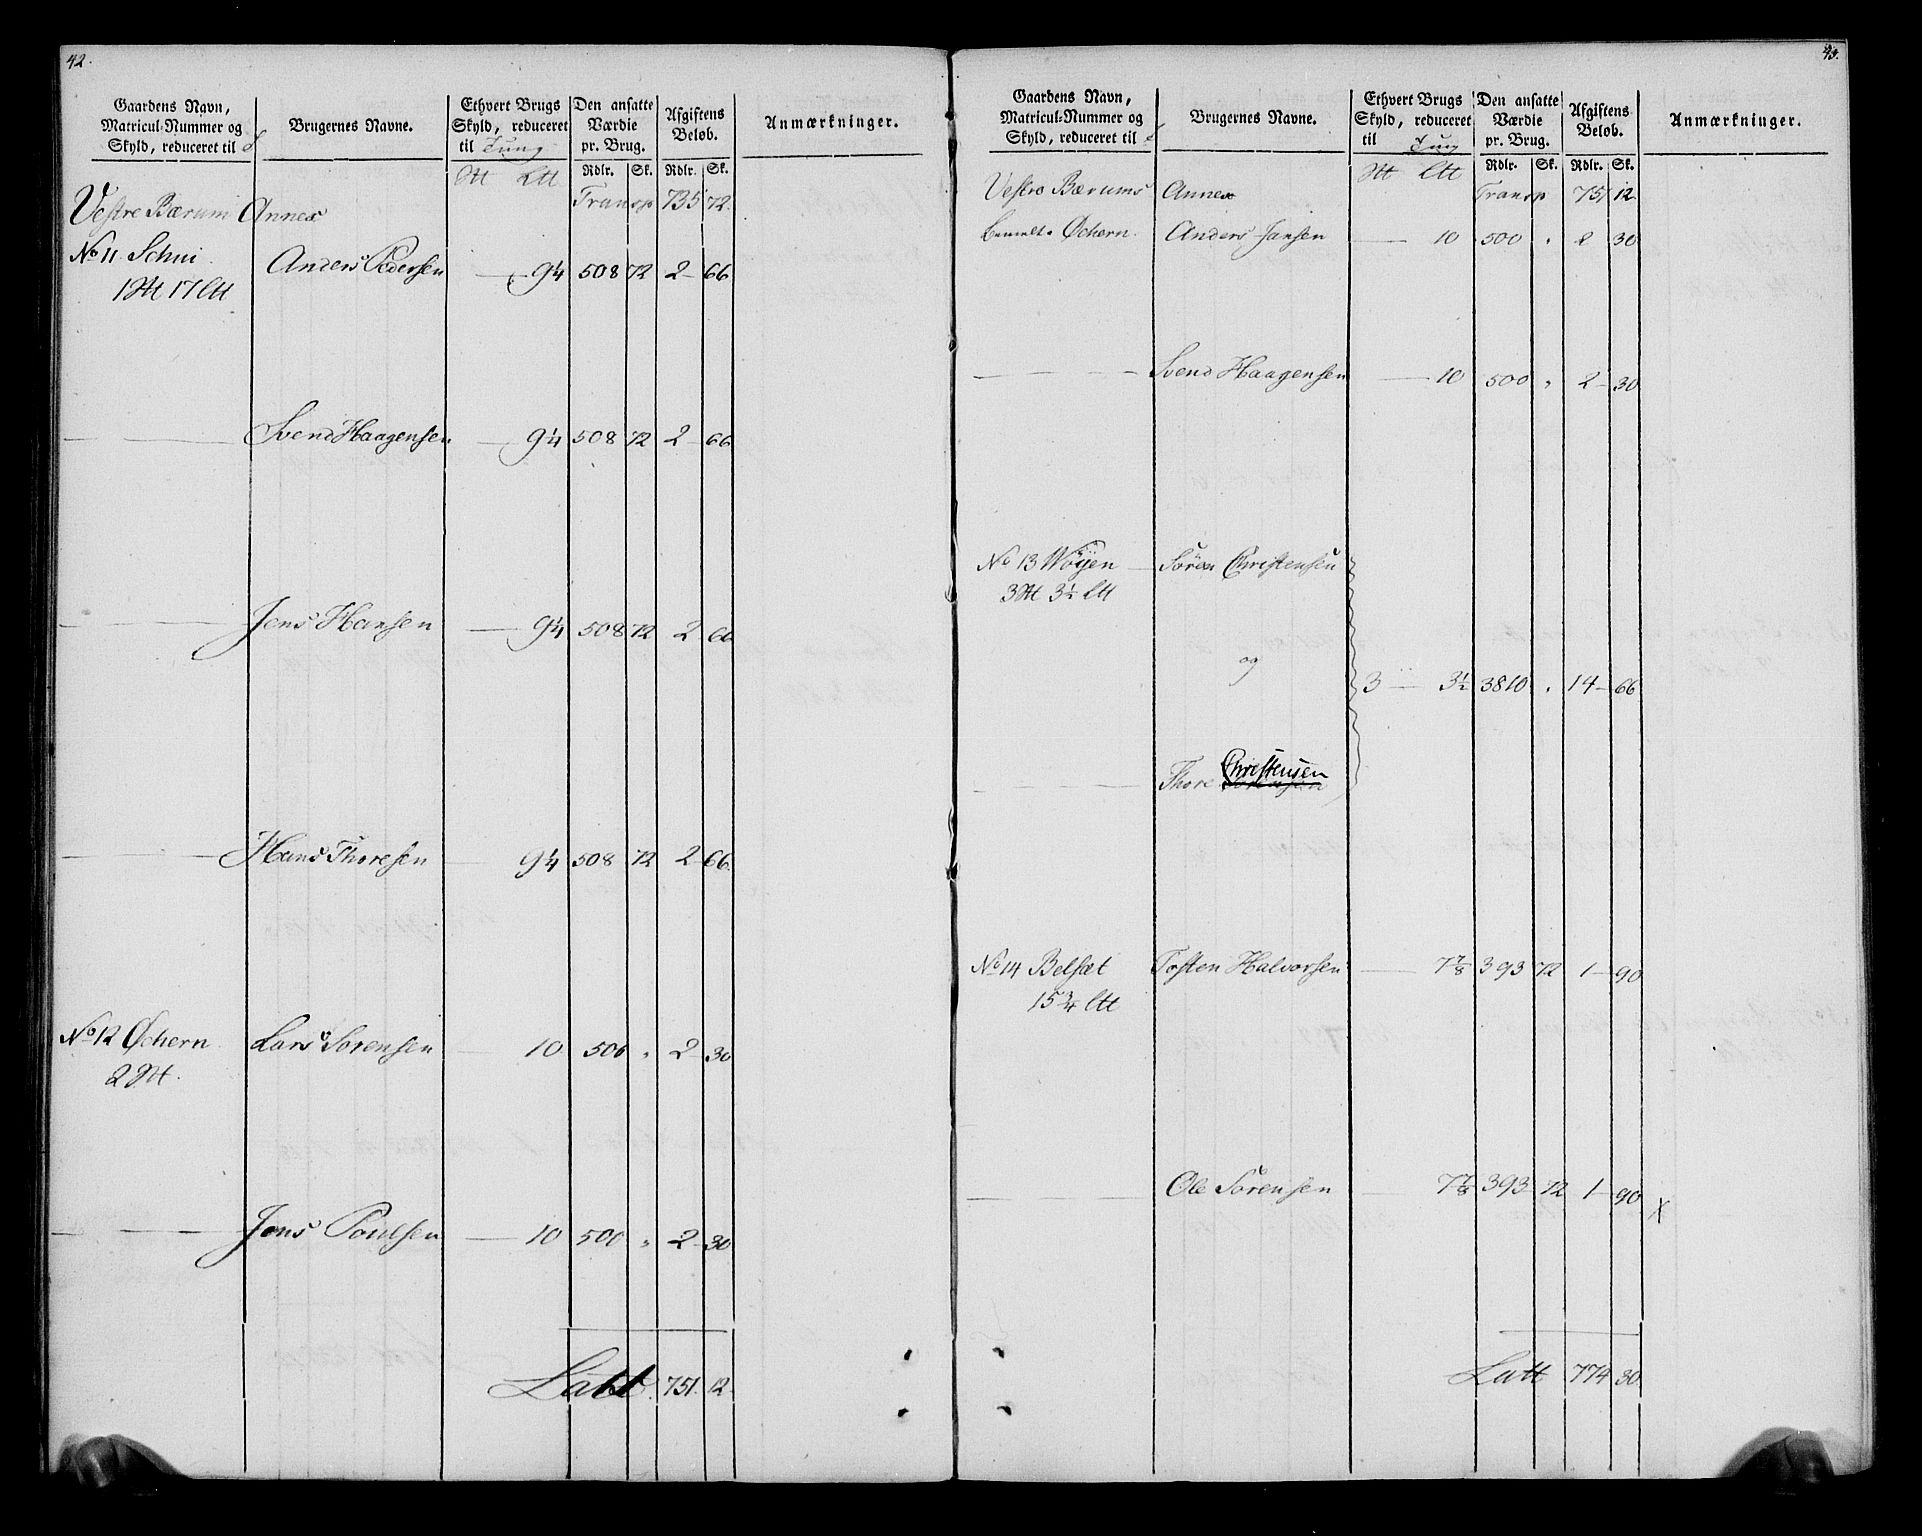 42.
Gaardens Navn, Matricul-Nummer og Skyld, reduceret til
Brugernes Navne.
Ethvert Brugs Skyld, reduceret til Tung
Den ansatte Værdie pr. Brug.
Afgiftens Beløb.
Anmærkninger.
Rdlr. Sk. Rdlr. Sk.
Vestre Bærum Annex Transp 735 72.
No 11. Schui Anders Pedersen — 9¼ 508 72 2 — 66
1 17
— — Svend Haagensen — 9¼ 508 72 2 — 66
— — Jens Hansen — 9¼ 508 72 2 66
— — Hans Thoresen — 9¼ 508 72 2 — 66.
No 12 Øchern Lars Sørensen — 10 500 " 2 — 30
2
— — Jens Poulsen — 10 500 " 2 — 30
Latt. 751. 12.
43.
Gaardens Navn, Matricul-Nummer og Skyld, reduceret til
Brugernes Navne.
Ethvert Brugs Skyld, reduceret til Tung
Den ansatte Værdie pr. Brug.
Afgiftens Beløb.
Anmærkninger.
Rdlr. Sk. Rdlr. Sk.
Vestre Bærums Annex Transp 751 12
Øchern. Anders Jansen — 10 500 " 2 30
— — Svend Haagensen — 10 500 " 2 — 30
No 13 Wøyen — Søren Christensen
3 3½
og 3 — 3½ 3810 " 14 — 66
Christensen
— — Thore Sørensen
No 14 Belset Tosten Halvorsen — 7⅞ 393 72 1 — 90
15¾
— — Ole Sørensen — 7⅞ 393 72 1 — 90 X
Latt 774 30.